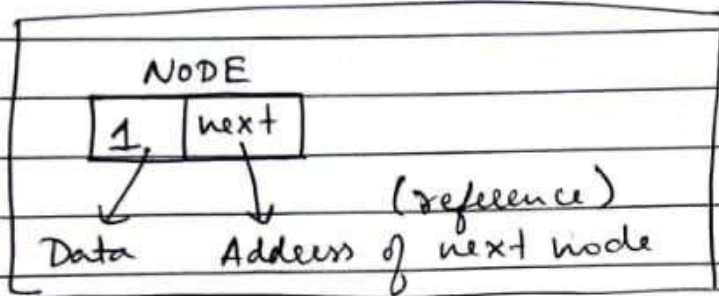 NODE
1 next
(reference)
Data Address of next node